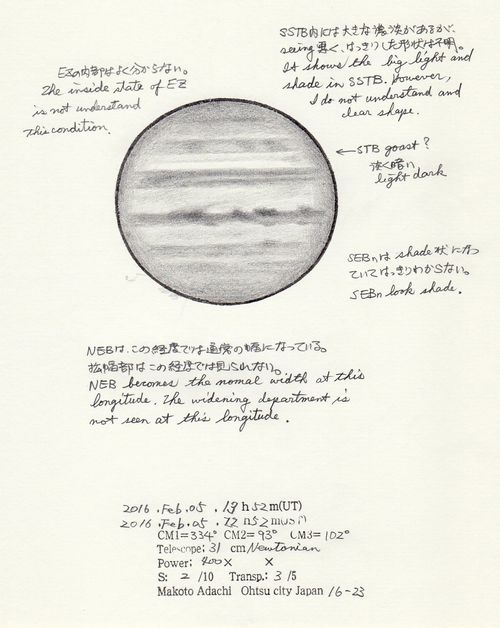 SSTB内には大きな濃淡があるが、
seeing 悪く、はっきりした形状は不明。
It shows the big light and
shade in SSTB. However,
I do not understand and
clear shape.
EZの内部はよく分からない。
The inside state of EZ
is not understand
this condition.
←STB goast?
淡く暗い
light dark
SEBnは shade 状になっ
ていてはっきりわからない。
SEBn look shade.
NEBは、この経度では通常の幅になっている。
拡幅部はこの経度では見られない。
NEB becomes the nomal width at this
longitude. The widening department is
not seen at this longitude.
2016.Feb.05.19h52m(UT)
2016.Feb.05
CM1=334° CM2=93° CM3=102°
Telescope: 31 cm/Newtonian
Power: 400× ×
S: 2 /10 Transp.: 3 /5
Makoto Adachi Ohtsu city Japan 16-23